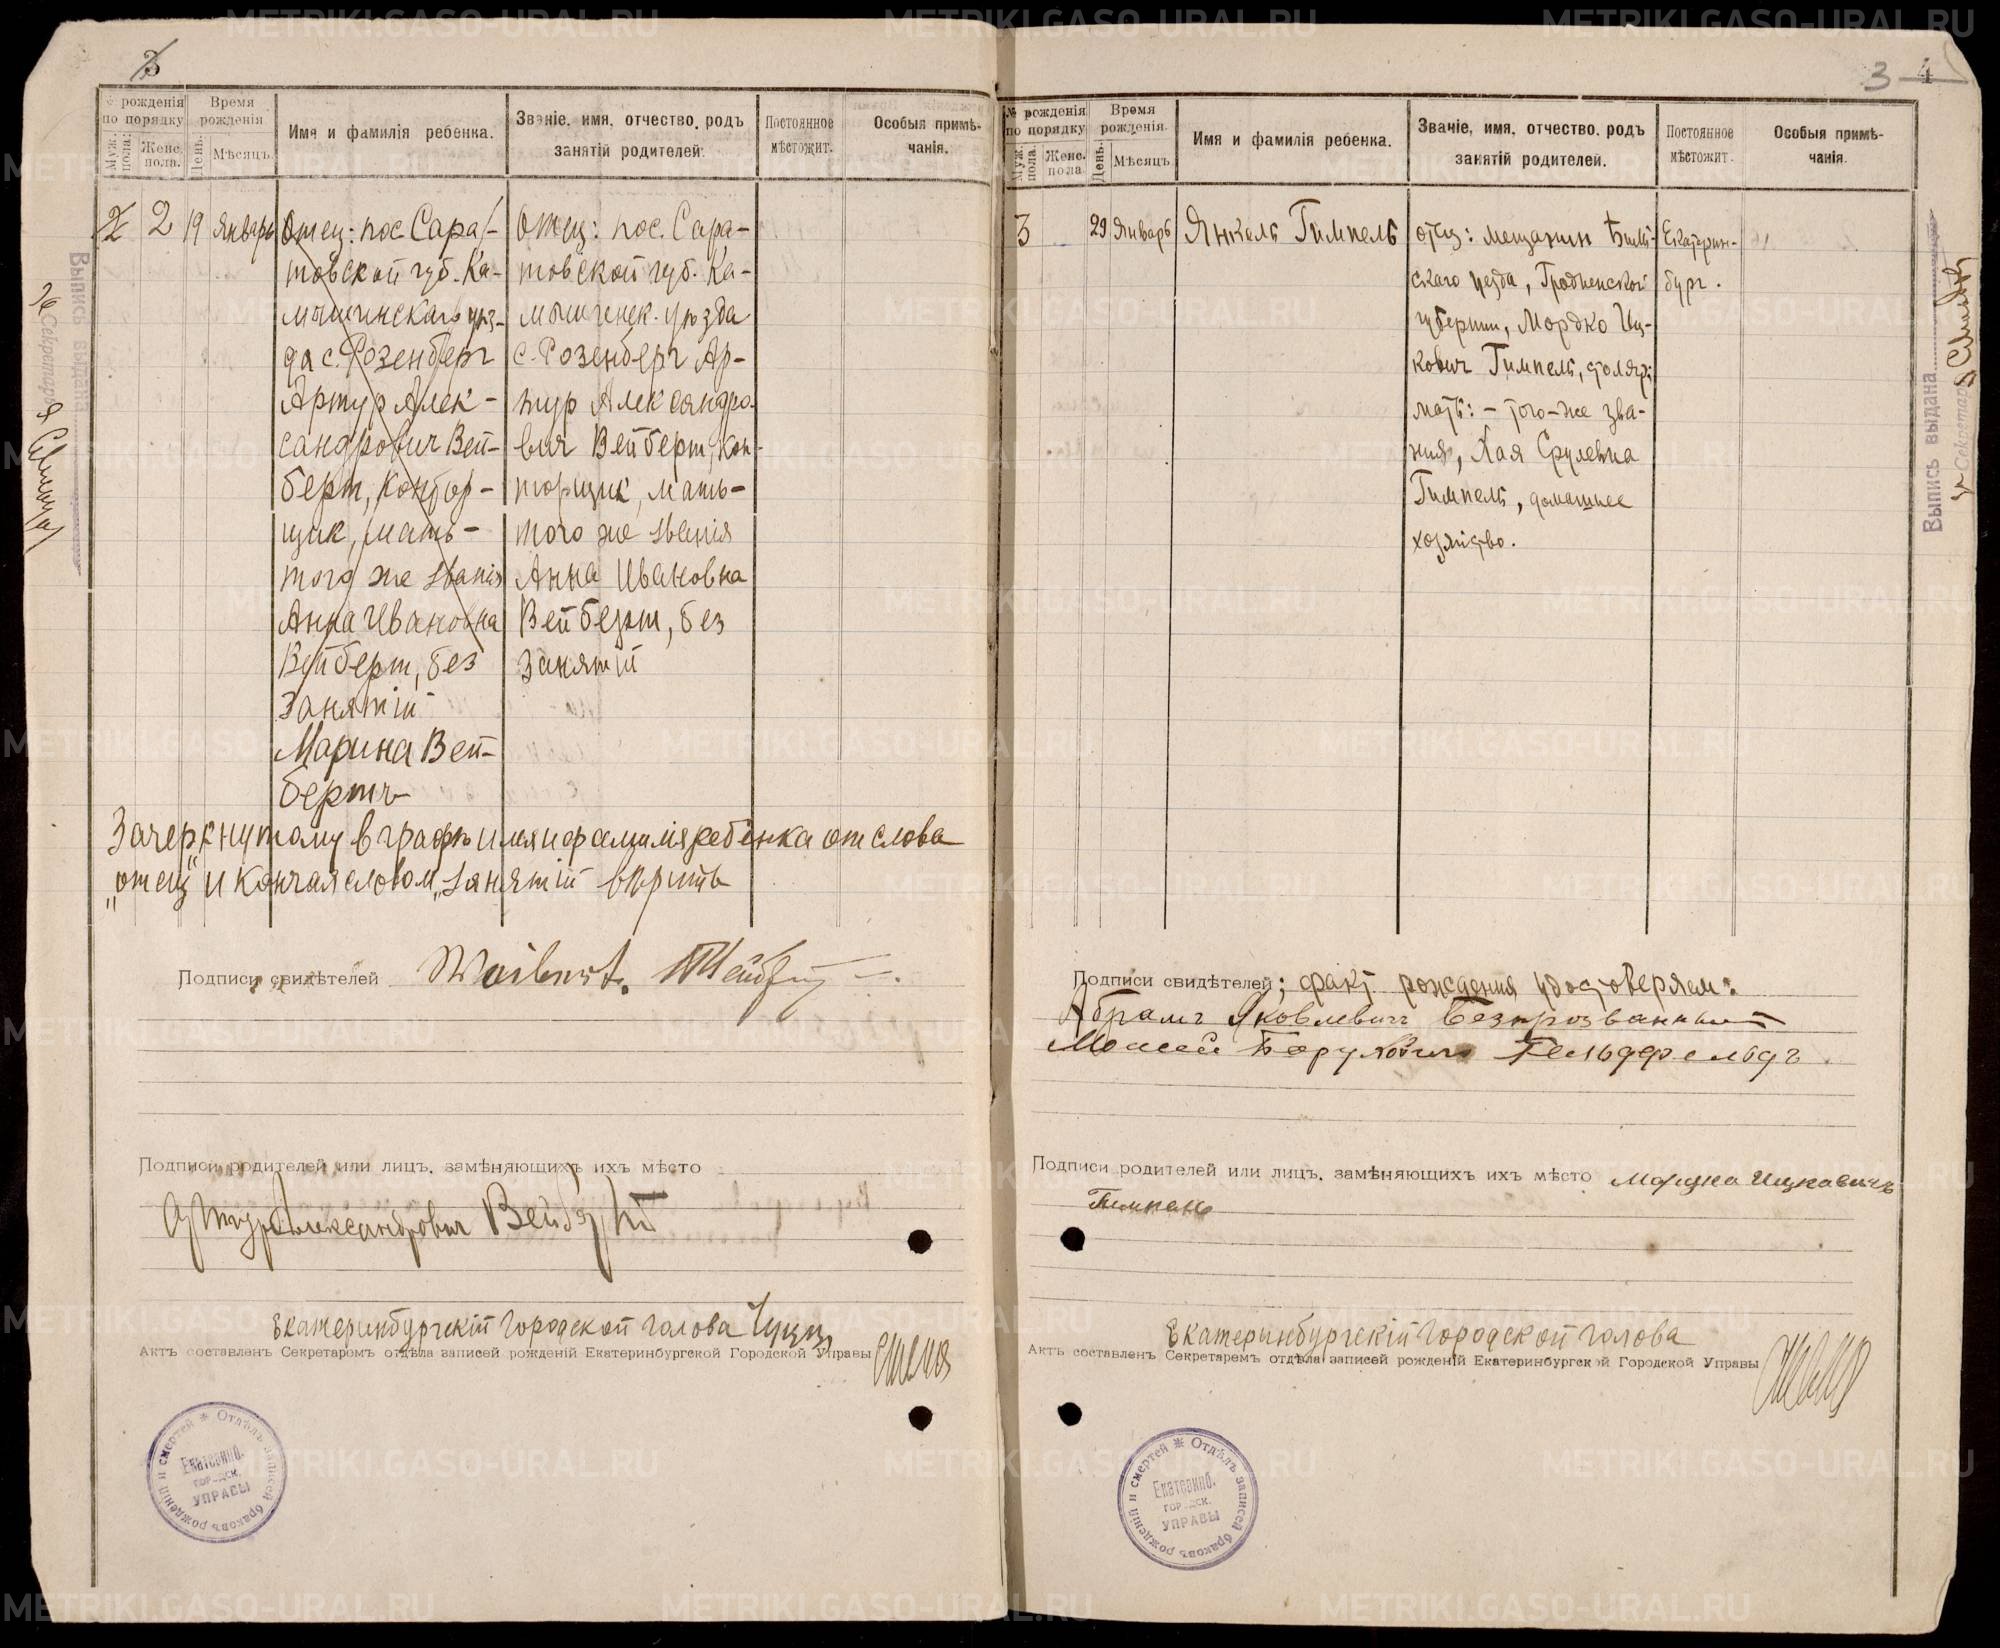 3
№ рожденія по порядку
Муж. пола.
Женс. пола.
Время рожденія
День.
Мѣсяцъ.
Имя и фамилія ребенка.
Званіе, имя, отчество, родъ занятій родителей.
Постоянное мѣстожит.
Особыя примѣчанія.
2
2
19
Январь
Отец: пос. Сара-
товской губ. Ка-
мышинскаго уез-
да с. Розенберг
Артур Алек-
сандрович Вей-
берт, контор-
щик, мать-
того же званія
Анна Ивановна
Вейберт, без
занятій
Марина Вей-
бертъ
Отец: пос. Сара-
товской губ. Ка-
мышинск. уезда
с. Розенберг Ар-
тур Александро-
вич Вейберт, кон-
торщик, мать-
того же званія
Анна Ивановна
Вейберт, без
занятій
Зачеркнутому в графѣ имя и фамилия ребенка от слова
„отец" и кончая словом „занятій верить
Подписи свидѣтелей Weibert.
Подписи родителей или лицъ, замѣняющихъ ихъ мѣсто
Артур Александрович Вейберт
Екатеринбургскій Городской голова
Актъ составленъ Секретаремъ отдѣла записей рожденій Екатеринбургской Городской Управы
Отдѣлъ записей браковъ рожденій и смертей
Екатеринб.
городск.
УПРАВЫ
Выпись выдана
Секретарь
3 4
№ рожденія по порядку
Муж. пола.
Женс. пола
Время рожденія.
День.
Мѣсяцъ.
Имя и фамилія ребенка.
Званіе, имя, отчество, родъ занятій родителей.
Постоянное мѣстожит.
Особыя примѣчанія.
3
29
Январь
Янкель Гимпель
отец: мещанин Бѣль-
скаго уезда, Гродненской
губернии, Мордко Иц-
кович Гимпель, столяр;
мать: - того-же зва-
ния, Хая Срулевна
Гимпель, домашнее
хозяйство.
Екатерин-
бург.
Подписи свидѣтелей; факт рождения удостоверяем:
Абрамъ Яковлевич Безпрозванный
Моисей Борухович Гельдфельдъ
Подписи родителей или лицъ, замѣняющихъ ихъ мѣсто Мордка Ицкавичъ
Гимпель
Екатеринбургскій Городской голова
Актъ составленъ Секретаремъ отдѣла записей рожденій Екатеринбургской Городской Управы
Отдѣлъ записей браковъ рожденій и смертей
Екатеринб.
городск.
УПРАВЫ
Выпись выдана
Секретарь
METRIKI.GASO-URAL.RU